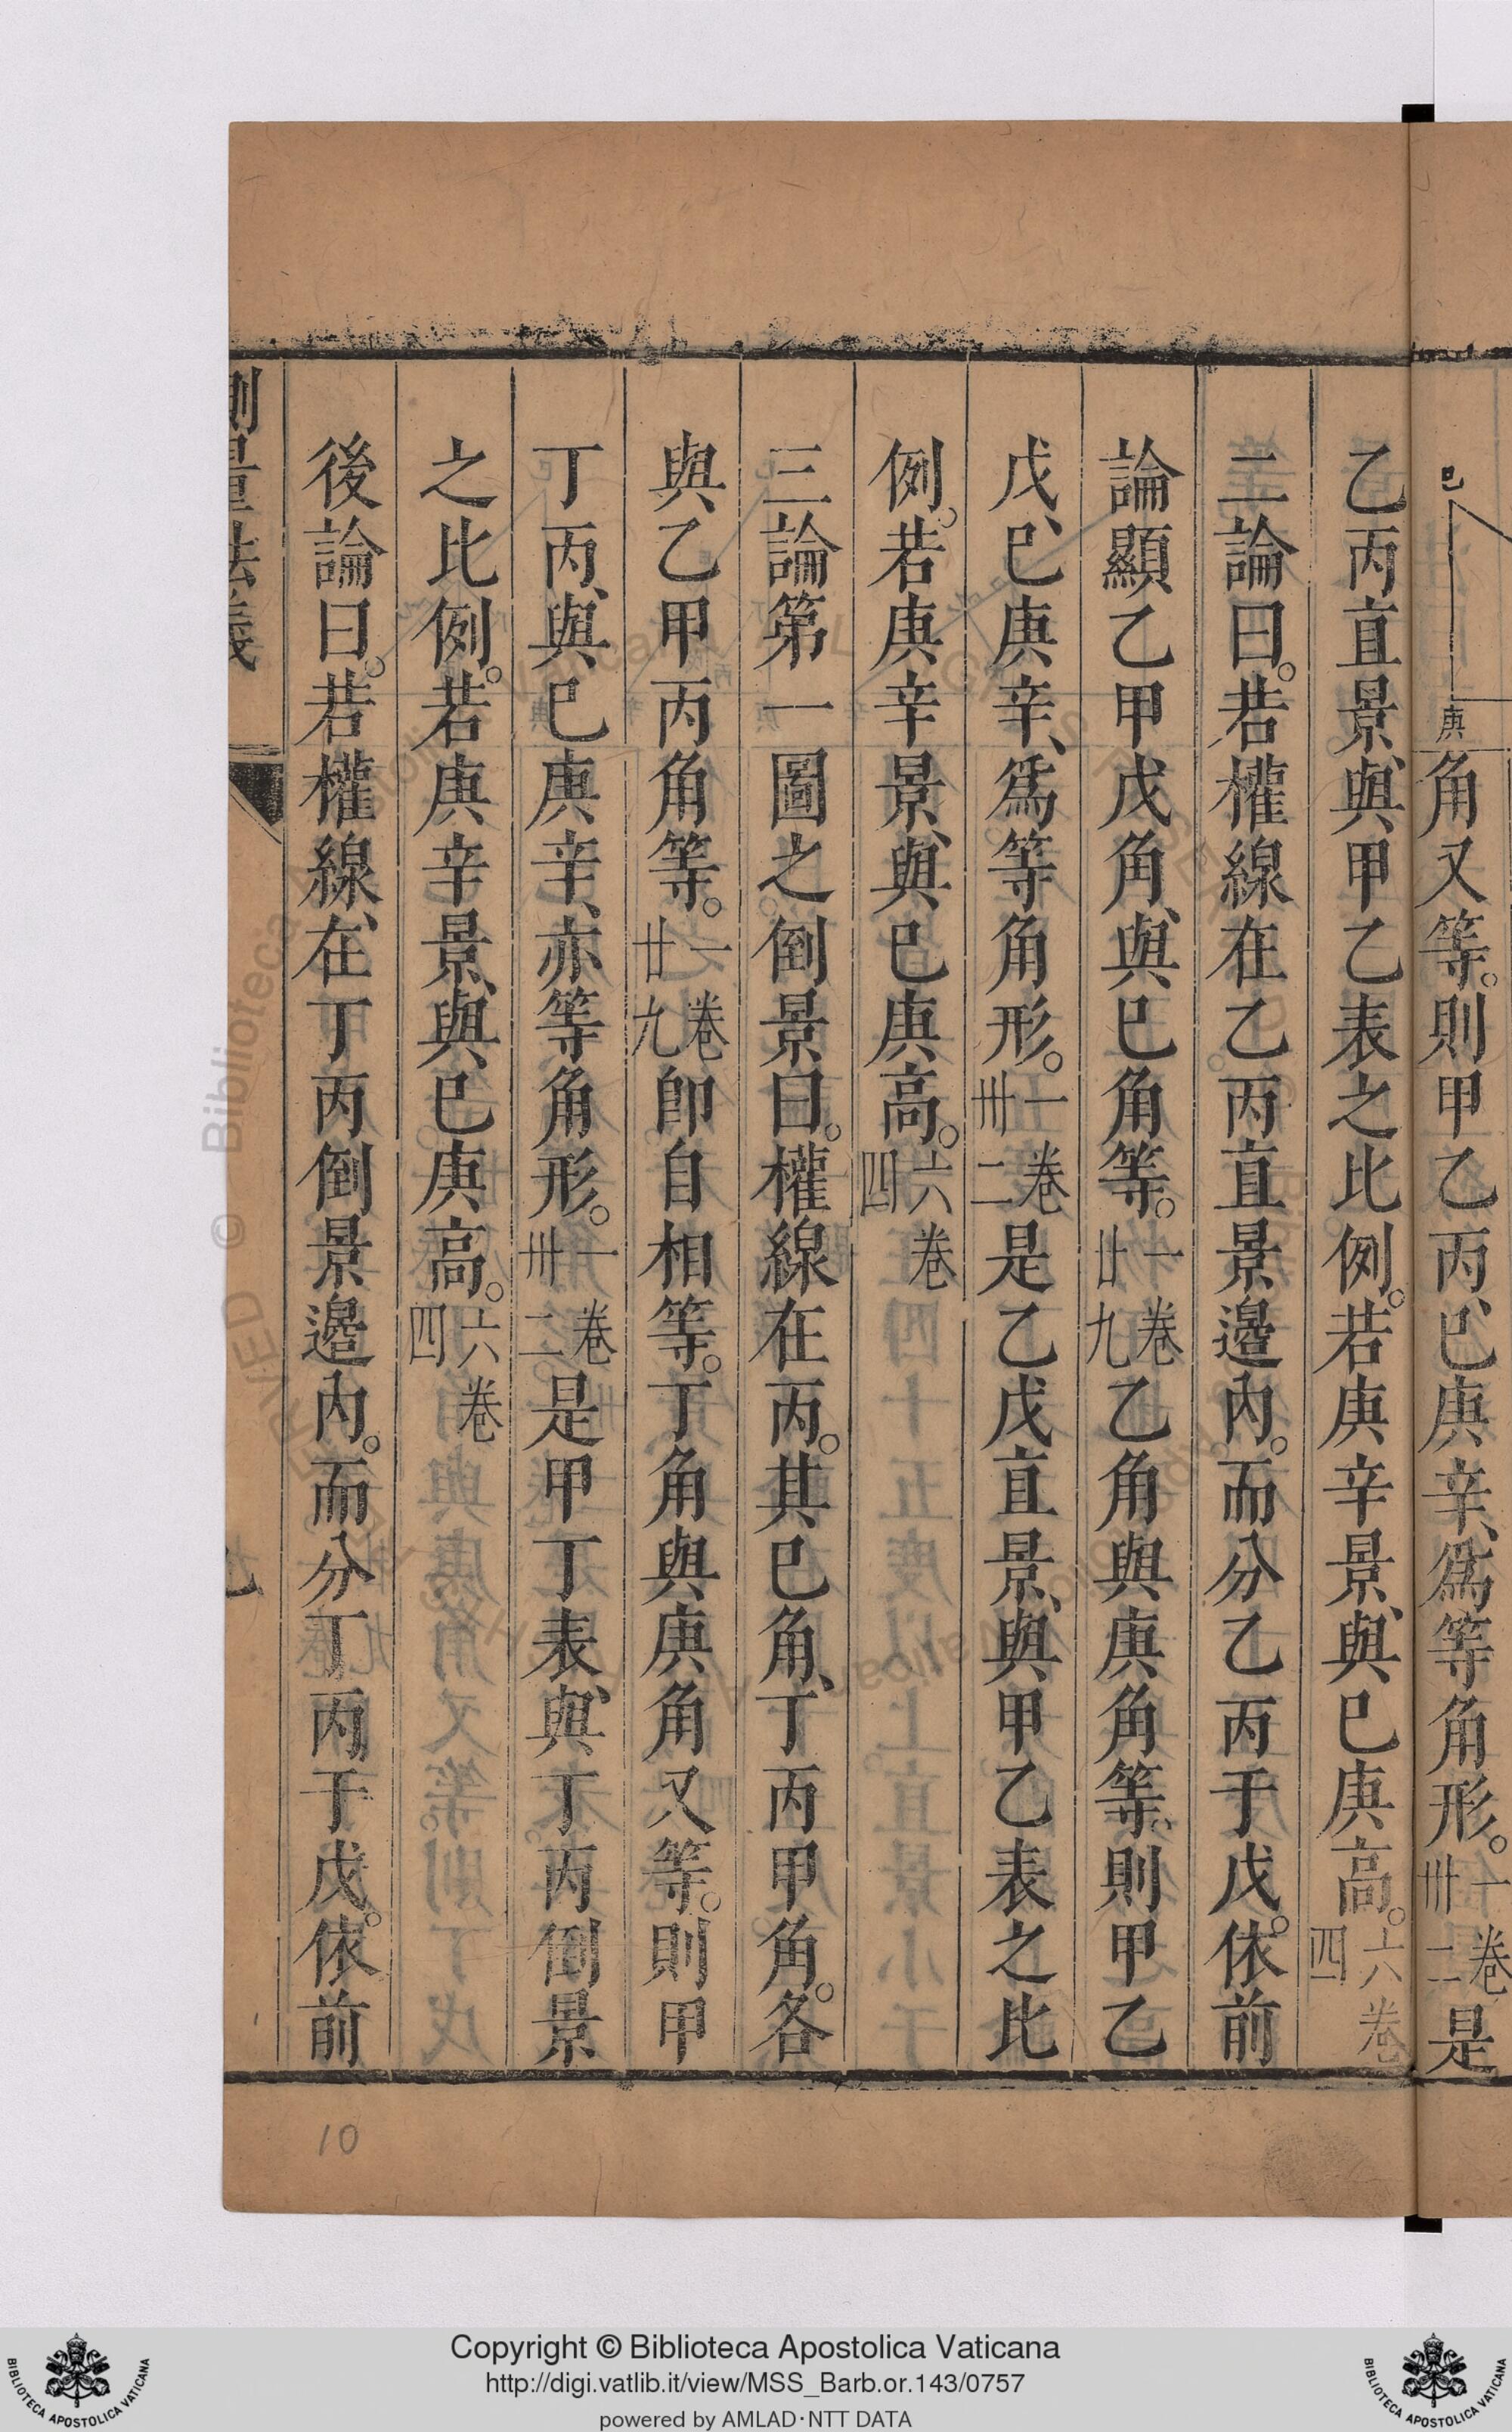 巳
庚
角又等。則甲乙丙、巳庚辛、爲等角形。一卷卅二是
乙丙直景、與甲乙表之比例。若庚辛景、與巳庚高。六卷四
二論曰。若權線在乙丙直景邉內。而分乙丙于戊。依前
論顯乙甲戊角、與巳角等。一卷廿九乙角與庚角等、則甲乙
戊、巳庚辛、爲等角形。一卷卅二是乙戊直景、與甲乙表之比
例。若庚辛景、與巳庚高。六卷四
三論第一圖之倒景曰。權線在丙。其巳角、丁丙甲角。各
與乙甲丙角等。一卷廿九卽自相等。丁角與庚角又等。則甲
丁丙、與巳庚辛、亦等角形。一卷卅二是甲丁表、與丁丙倒景
之比例。若庚辛景、與巳庚高。六卷四
後論曰。若權線、在丁丙倒景邉內。而分丁丙于戊。依前
測量法義
10
Copyright © Biblioteca Apostolica Vaticana
http://digi.vatlib.it/view/MSS_Barb.or.143/0757
powered by AMLAD·NTT DATA
BIBLIOTECA APOSTOLICA VATICANA
BIBLIOTECA APOSTOLICA VATICANA